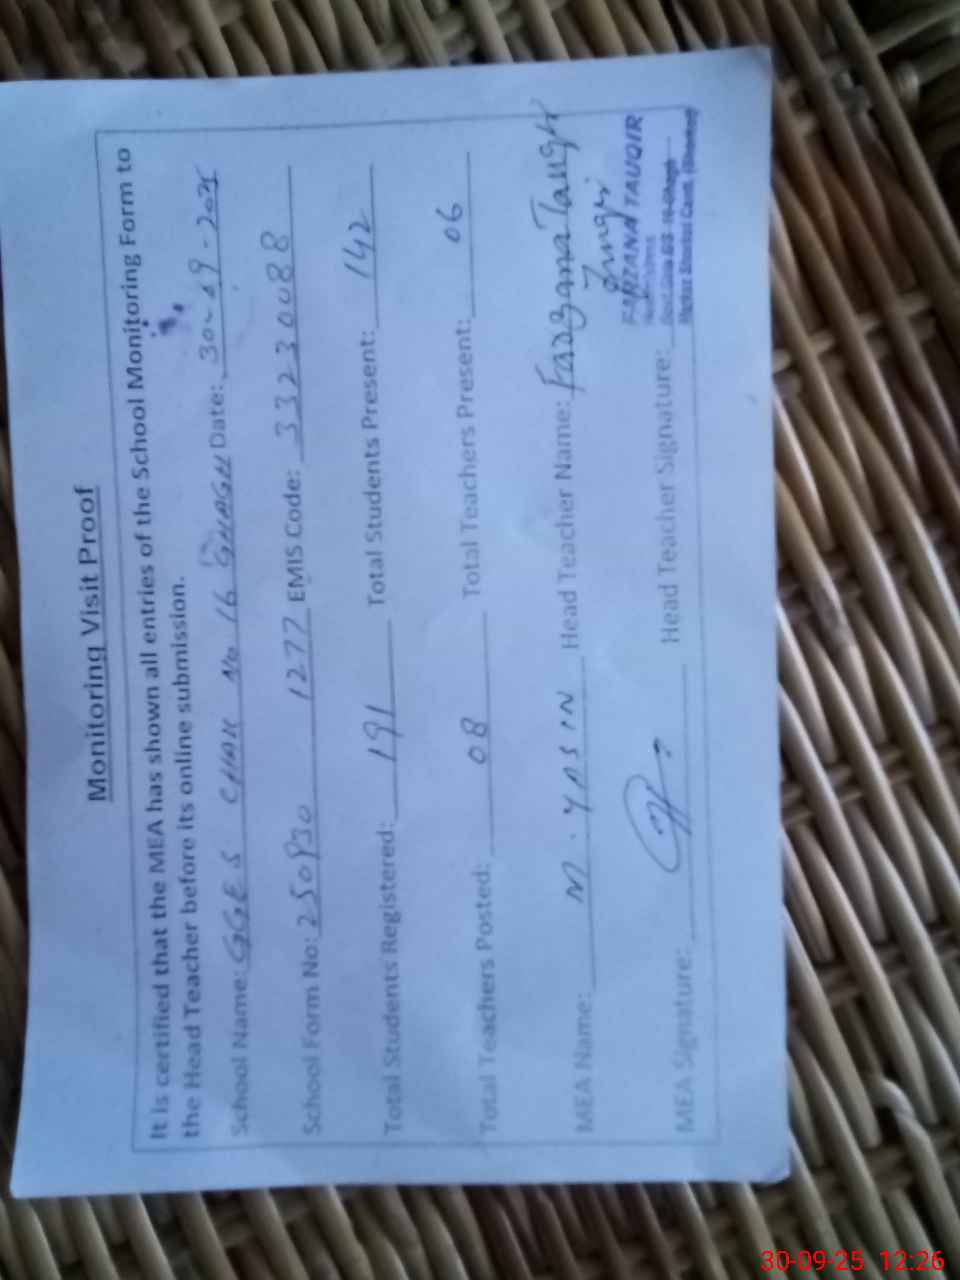 Monitoring Visit Proof
It is certified that the MEA has shown all entries of the School Monitoring Form to
the Head Teacher before its online submission.
School Name: GGES CHAK No 16 GHAGH Date: 30-09-2025
School Form No: 250930 1277 EMIS Code: 33230088
Total Students Registered: 191 Total Students Present: 142
Total Teachers Posted: 08 Total Teachers Present: 06
MEA Name: M. YASIN Head Teacher Name: Farzana
MEA Signature: Head Teacher Signature:
FARZANA TAUQIR
30-09-25 12:26